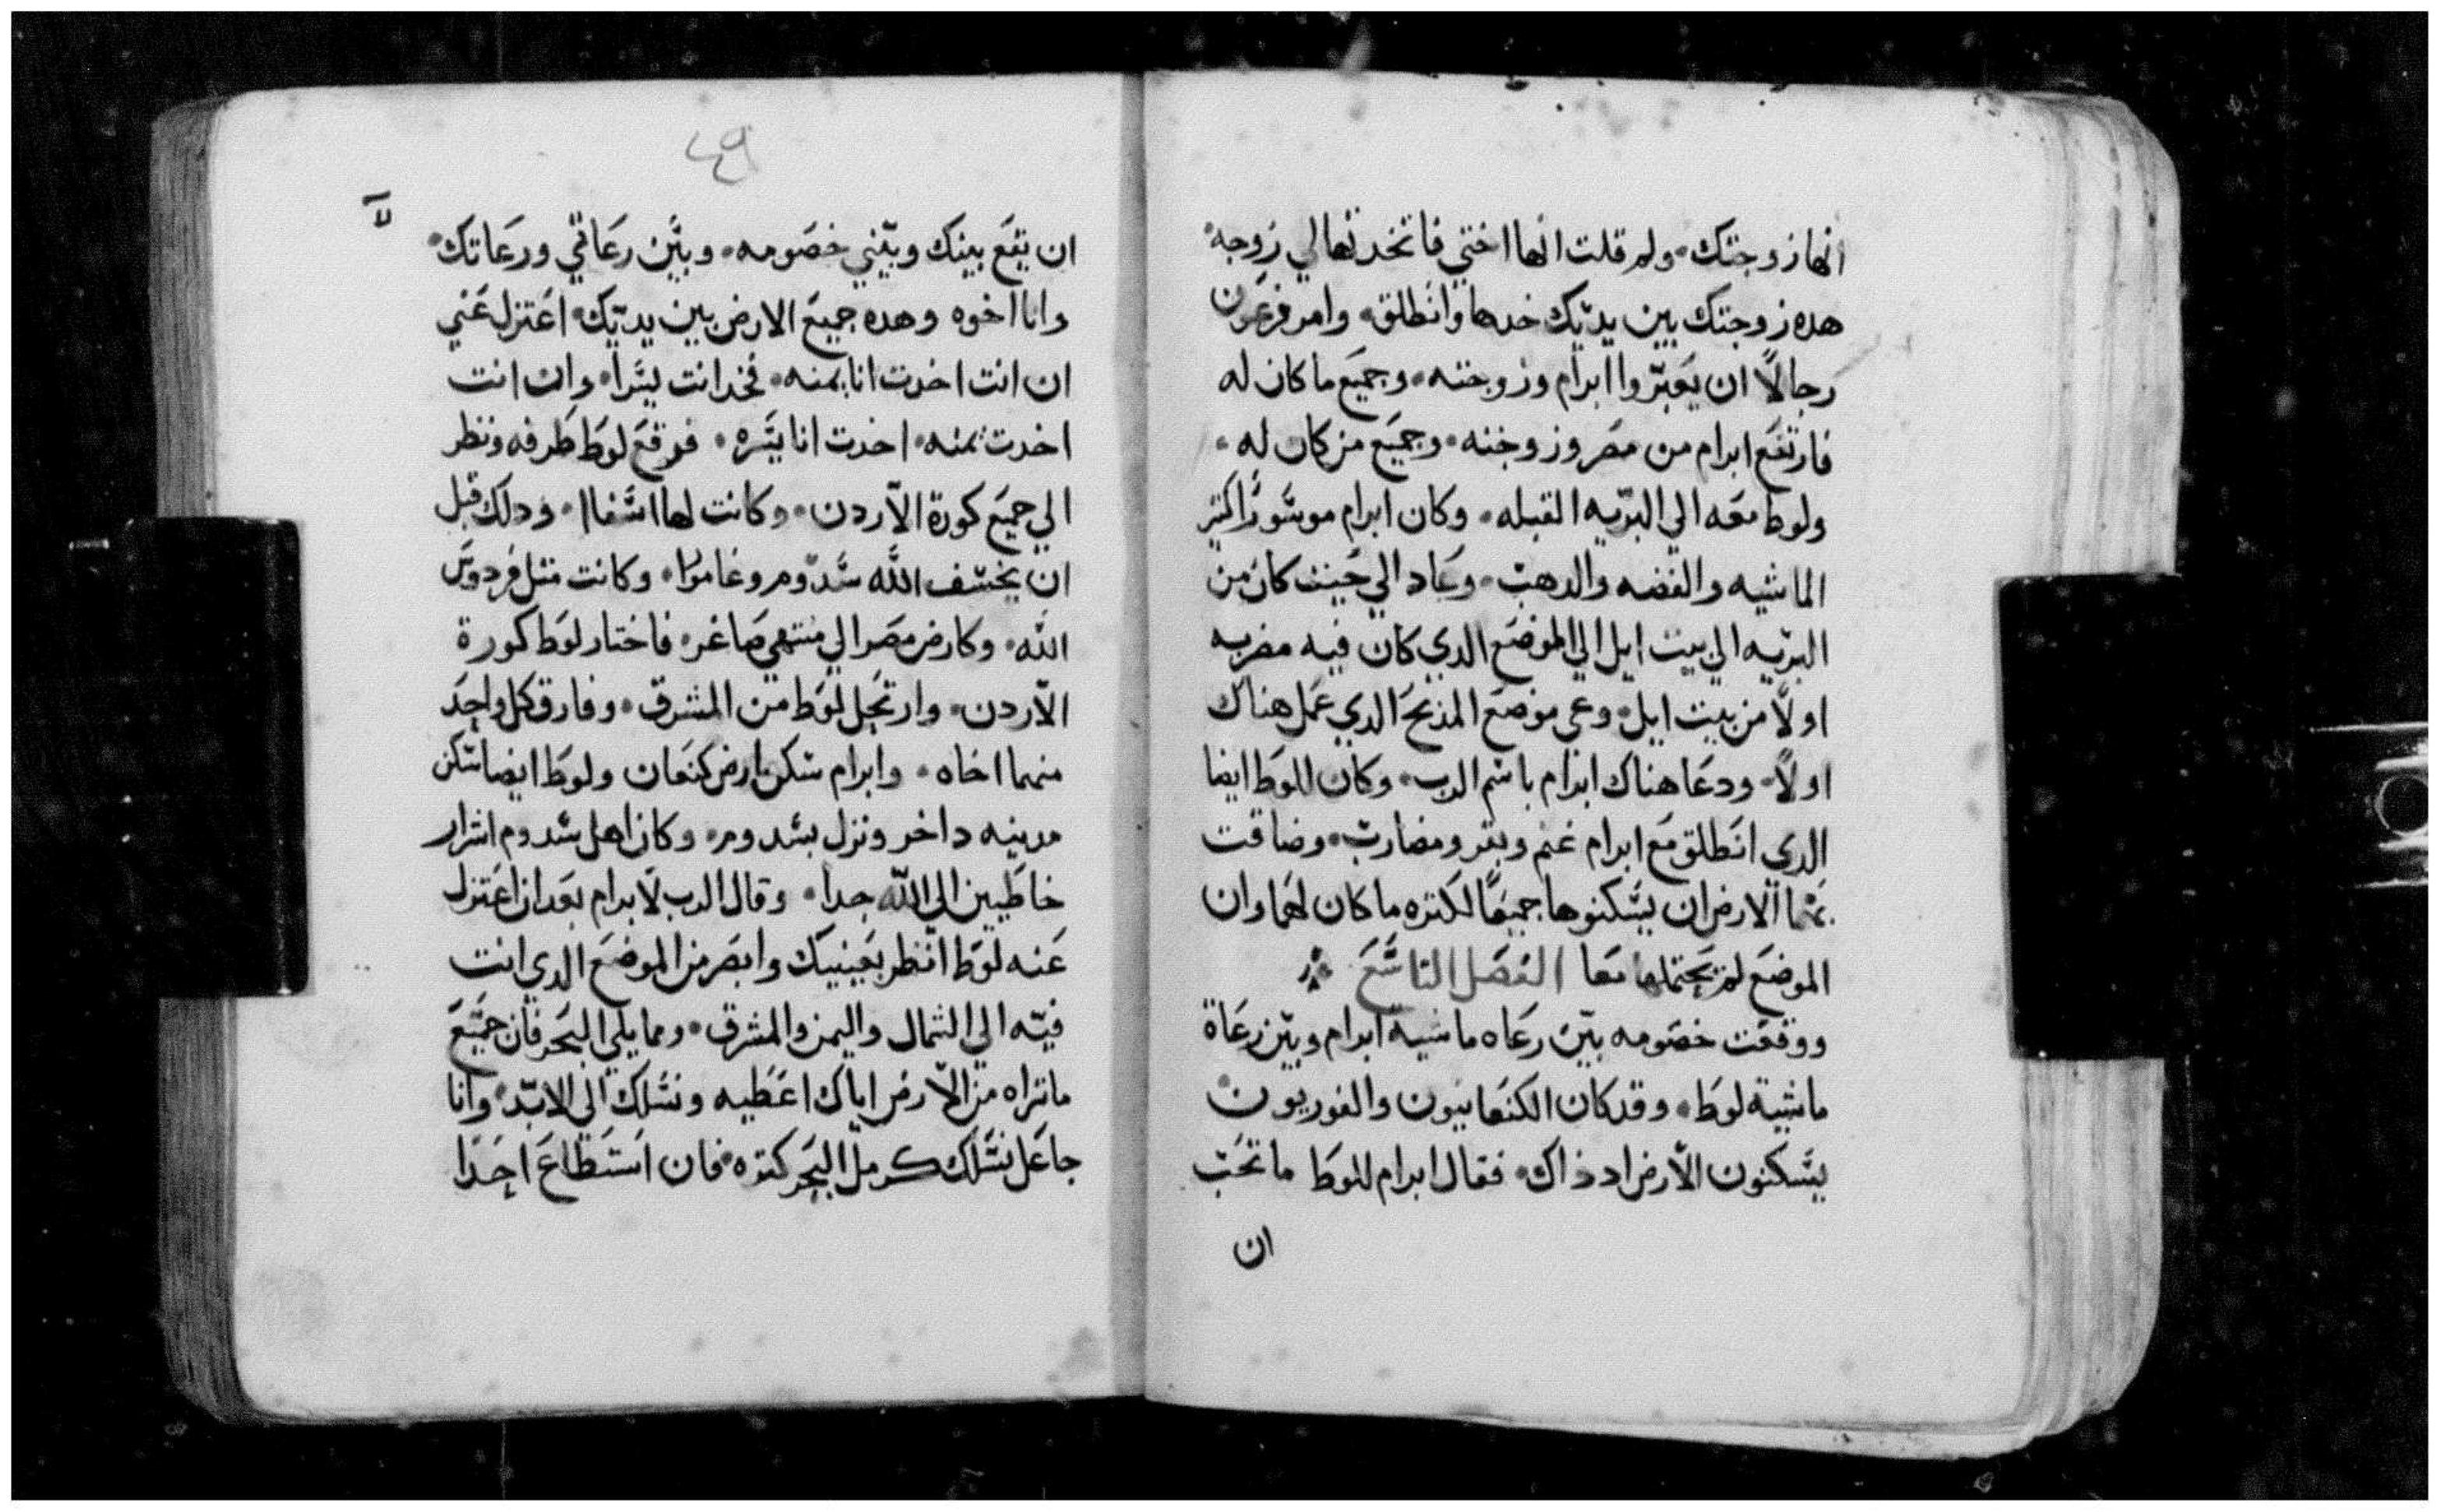 انها زوجتك. ولم قلت انها اختي فاتخدتها لي زوجه.
هده زوجتك بين يديك خدها وانطلق. وامر فرعون
رجالًا ان يعبّروا ابرام وزوجته. وجميع ما كان له
فارتفع ابرام من مصر وزوجته. وجميع من كان له.
ولوط معه الي البرّيه القبله. وكان ابرام موسورًا كتير
الماشيه والفضه والدهب. وعاد الي حيث كان من
البرّيه الي بيت ايل الي الموضع الدي كان فيه مضربه
اولًا من بيت ايل. وعي موضع المذبح الدي عمل هناك
اولًا. ودعا هناك ابرام باسم الرب. وكان للوط ايضا
الدي انطلق مع ابرام غنم وبقر ومضارب. وضاقت
بهما الارض ان يسكنوها جميعًا لكتره ما كان لهما وان
الموضع لم يحتملها معا الفصل التاسع
ووقعت خصومه بين رعاه ماشية ابرام وبين رعاة
ماشية لوط. وقد كان الكنعانيون والفوريون
يسكنون الارض اد ذاك. فقال ابرام للوط ما تحب
ان
٤٩
لا
ان يقع بينك وبيني خصومه. وبين رعاتي ورعاتك.
وانا اخوه وهده جميع الارض بين يديك. اعتزل عني
ان انت اخدت انا يمنه. فخد انت يسرا. وان انت
اخدت يمنه. اخدت انا يسره. فوقع لوط طرفه ونظر
الي جميع كورة الاردن. وكانت لها اسفاا. ودلك قبل
ان يخسف الله سدوم وغامورا. وكانت متل فردوس
الله. وكارض مصر الي منتهي صاغر. فاختار لوط كورة
الاردن. وارتحل لوط من المشرق. وفارق كل واحد
منهما اخاه. وابرام سكن ارض كنعان ولوط ايضا سكن
مدينه داخر ونزل بسدوم. وكان اهل سدوم اشرار
خاطيين الي الله جدا. وقال الرب لابرام بعد ان اعتزل
عنه لوط انظر بعينيك وابصر من الموضع الدي انت
فيه الي الشمال واليمن والمشرق. ومما يلي البحر فان جميع
ما تراه من الارض اياك اعطيه ونسلك الي الابد. وانا
جاعل نسلك كرمل البحر كتره. فان استطاع احدًا